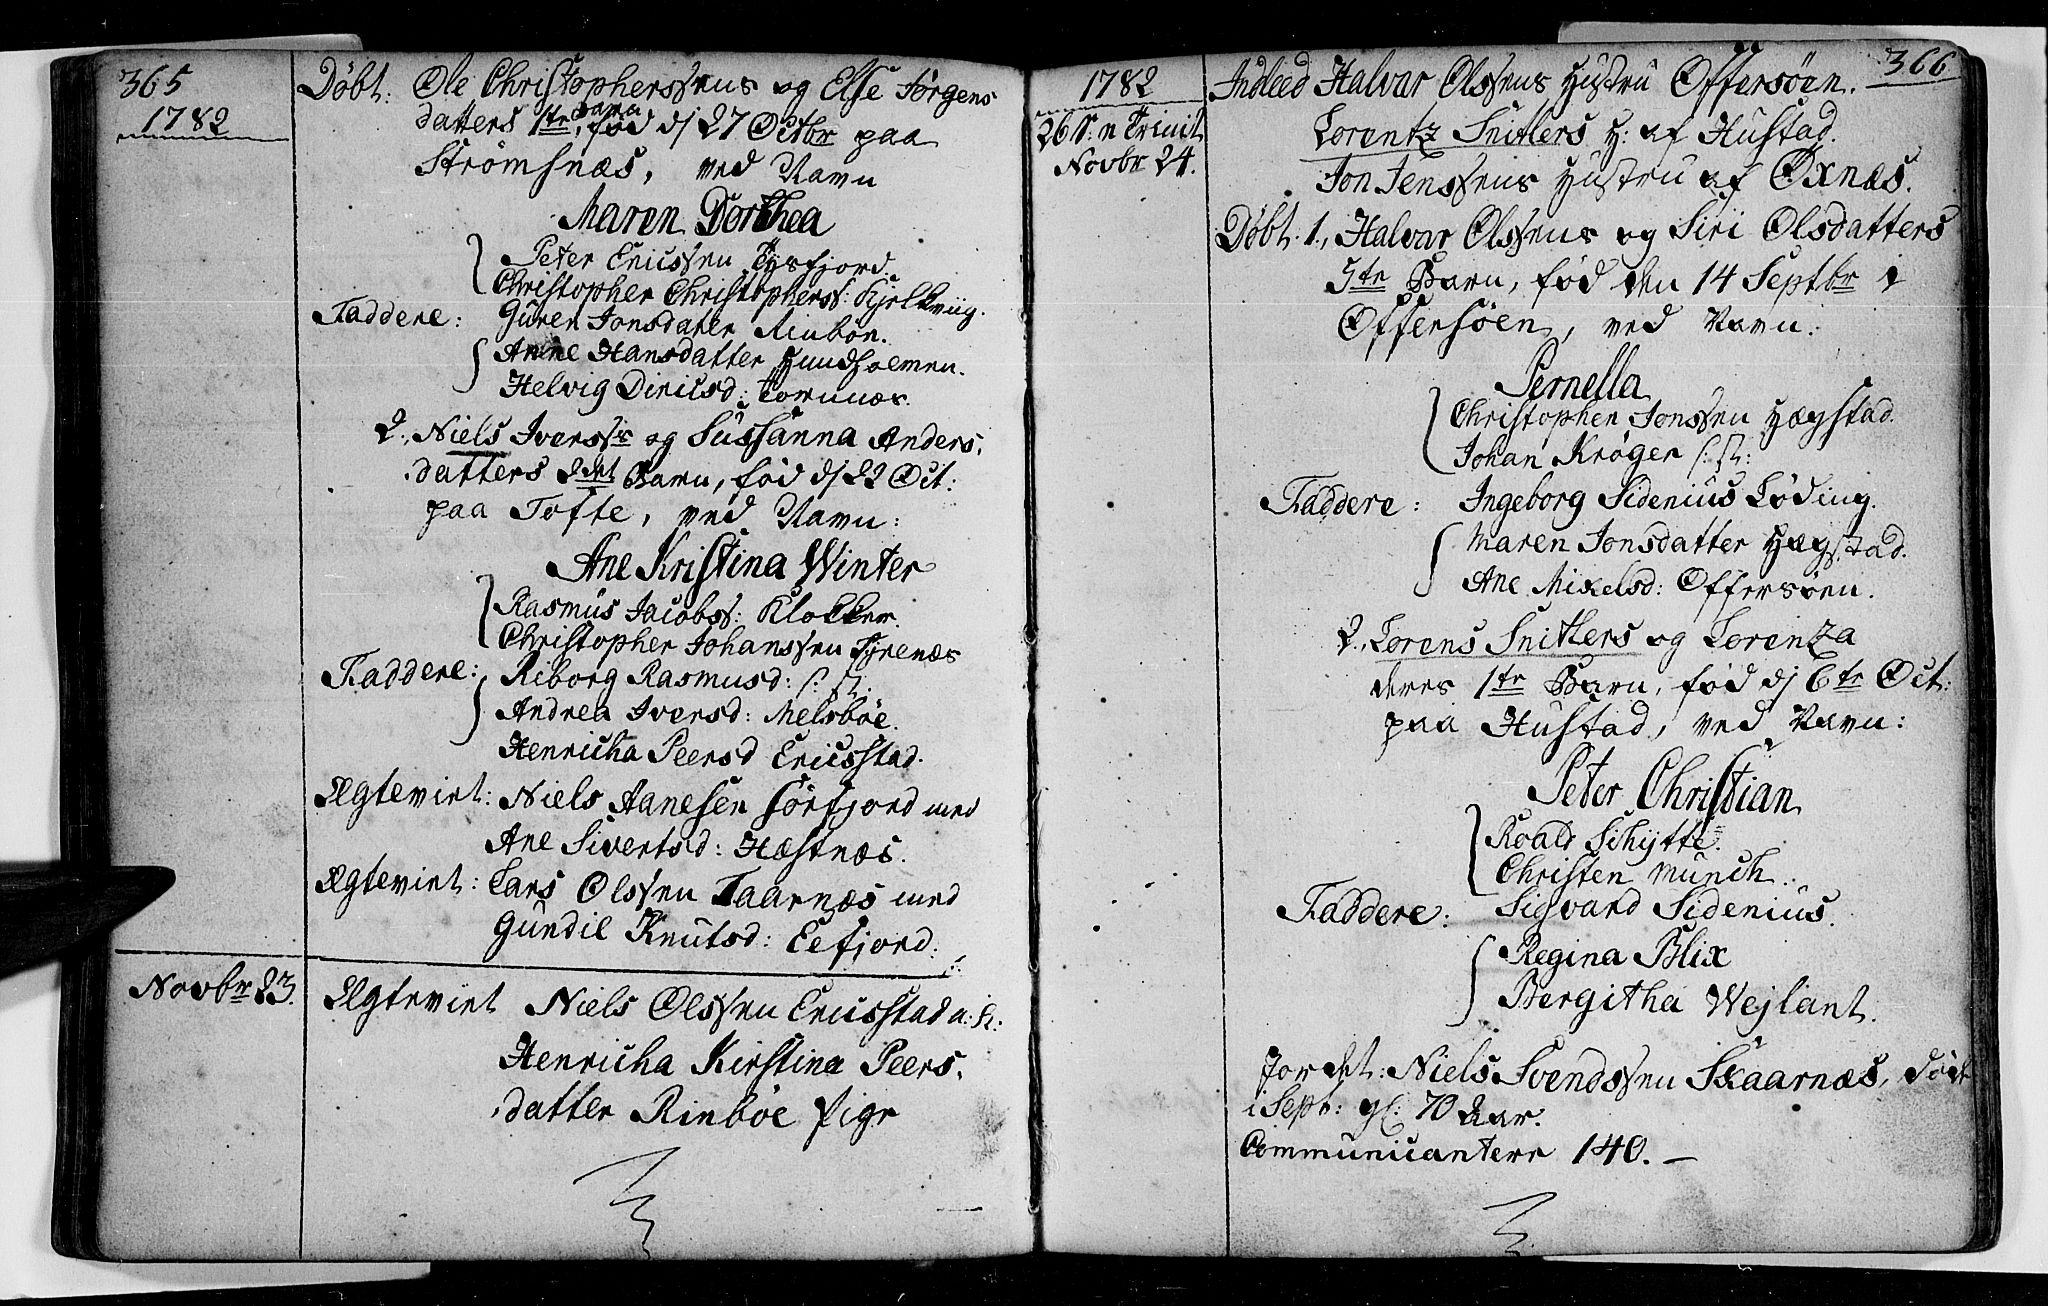 365
1782
Döbt: Ole Christopherssens og Else Jörgens
datters 1te Barn, fød d/ 27 Octbr paa
Strømsnæs, ved Navn
Maren Dorthea
Peter Ericssen Tysfjord.
Christopher Christopherss: Kjelkviig.
Faddere: Guren Jonsdater Rinbön.
Anne Hansdatter Hundholmen.
Helvig Diricsd: Kornnæs.
2. Niels Iverss's og Sussanna Anders,
datters 2det Barn, fød d/ 22 Oct:
paa Tofte, ved Navn:
Ane Kristina Winter
Rasmus Jacobss: Klokker.
Christopher Johanssen Fyrenæs
Faddere: Riborg Rasmusd: /: st:
Andrea Iversd: Melsböe.
Henricha Peersd Ericsstad.
Ægteviet: Niels Aanesen Sörfjord med
Ane Sivertsd: Hæstnæs.
Ægteviet: Lars Olssen Taarnæs med
Gundil Knutsd: Eefjord.
Novbr 23. Ægteviet Niels Olssen Ericsstad u: k:
Henricha Kirstina Peers,
datter Rinböe Pige
366
1782
26 S: n Trinit
Novbr 24.
Indleed Halvar Olssens Hustru Offersöen.
Lorentz Snitlers H: af Hustad.
Jon Jenssens Hustru af Oxnæs.
Döbt. 1., Halvar Olssens og Siri Olsdatters
5te Barn, fød den 14 Septbr i
Offersöen, ved Navn:
Pernella
Christopher Jonssen Hægstad.
Johan Kröger /: st:
Faddere: Ingeborg Sidenius Löding.
Maren Jonsdatter Hægstad.
Ane Mikelsd: Offersöen.
2., Lorens Snitlers og Lorentza
deres 1te Barn, fød d/ 6te Oct:
paa Hustad, ved Navn:
Peter Christian
Roald Schytte.
Christen Munch.
Faddere: Sigvard Sidenius.
Regina Blix
Bergitha Wejlant.
Jordet: Niels Svendssen Skaarnæs, död
i Sept: gl: 70 Aar.
Communicantere 140. —